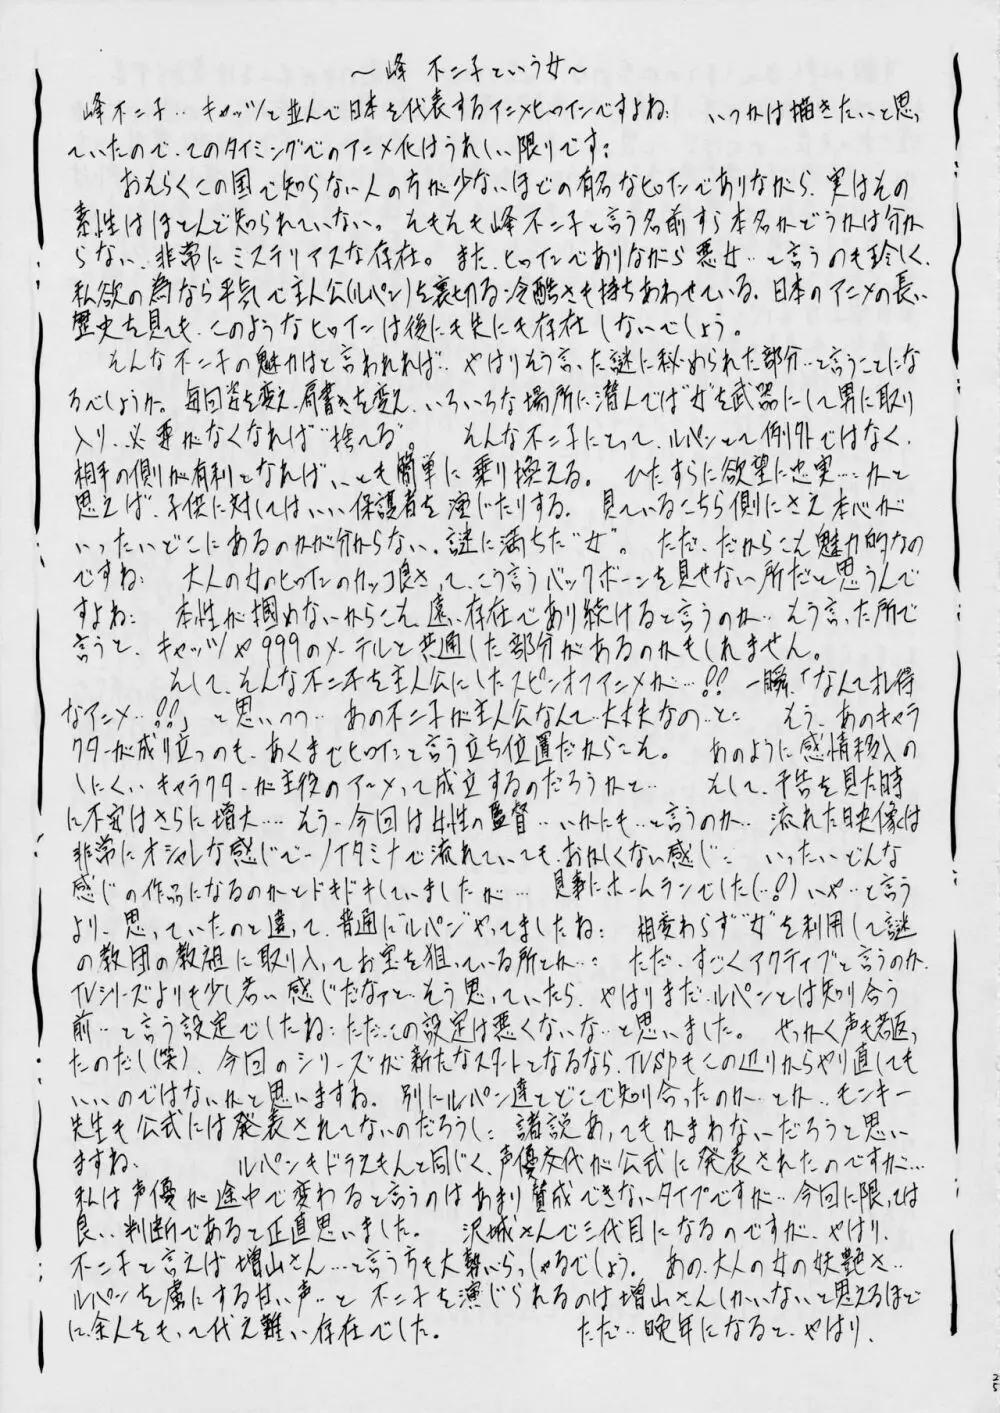 ～峰 不二子という女～
峰不二子‥キャッツと並んで日本を代表するアニメヒロインですよね： いつかは描きたいと思っ
ていたので、このタイミングでのアニメ化はうれしい限りです：
おそらくこの国で知らない人の方が少ないほどの有名なヒロインでありながら、実はその
素性はほとんど知られていない。そもそも峰不二子と言う名前すら本名かどうかは分か
らない、非常にミステリアスな存在。また、ヒロインでありながら悪女‥と言うのも珍しく、
私欲の為なら平気で主人公(ルパン)を裏切る冷酷さも持ちあわせている。日本のアニメの長い
歴史を見ても、このようなヒロインは後にも先にも存在しないでしょう。
そんな不二子の魅力はと言われれば‥やはりそう言った謎に秘められた部分‥と言うことにな
るでしょうか。毎回姿を変え、肩書きを変え、いろいろな場所に潜んでは“女”を武器にして男に取り
入り、必要がなくなれば“捨てる”。 そんな不二子にとって、ルパンとて例外ではなく、
相手の側が有利となれば、いとも簡単に乗り換える。 ひたすらに欲望に忠実‥‥かと
思えば、子供に対してはいい保護者を演じたりする。見ているこちら側にさえ本心が
いったいどこにあるのかが分からない、謎に満ちた“女”。ただ、だからこそ魅力的なの
ですね： 大人の女のヒロインのカッコ良さって、こう言うバックボーンを見せない所だと思うんで
すよね： 本性が掴めないからこそ、遠い存在であり続けると言うのか‥そう言った所で
言うと、キャッツや999のメーテルと共通した部分があるのかもしれません。
そして、そんな不二子を主人公にしたスピンオフアニメが‥‥!! 一瞬、「なんてお得
なアニメ‥!!」と思いつつ‥あの不二子が主人公なんて‥大丈夫なの‥と： そう、あのキャラ
クターが成り立つのも、あくまでヒロインと言う立ち位置だからこそ。 あのように感情移入の
しにくいキャラクターが主役のアニメって成立するのだろうかと‥ そして、予告を見た時
に不安はさらに増大‥‥そう、今回は女性の監督‥いかにも‥と言うのか‥流れた映像は
非常にオシャレな感じで－ノイタミナで流れていても、おかしくない感じ： いったいどんな
感じの作品になるのかとドキドキしていましたが‥‥見事にホームランでした(‥!)いや‥と言う
より、思っていたのと違って、普通に“ルパン”やってましたね： 相変わらず“女”を利用して謎
の教団の教祖に取り入ってお宝を狙っている所とか‥： ただ、すごくアクティブと言うのか、
TVシリーズよりも少し若い感じだなァと‥そう思っていたら、やはりまだルパンとは知り合う
前‥と言う設定でしたね：ただ、この設定は悪くないな‥と思いました。 せっかく声も若返っ
たのだし(笑)、今回のシリーズが新たなスタートとなるなら、TVSPもこの辺りからやり直しても
いいのではないかと思いますね。別にルパン達とどこで知り合ったのか‥とか‥モンキー
先生も公式には発表されてないのだろうし： 諸説あってもかまわないだろうと思い
ますね。 ルパンもドラえもんと同じく、声優交代が公式に発表されたのですが‥‥
私は声優が途中で変わると言うのはあまり賛成できないタイプですが‥今回に限っては
良い判断であると正直思いました。 沢城さんで三代目になるのですが、やはり、
不二子と言えば増山さん‥‥と言う方も大勢いらっしゃるでしょう。 あの、大人の女の妖艶さ‥
ルパンを虜にする甘い声‥と 不二子を演じられるのは増山さんしかいないと思えるほど
に、余人をもって代え難い存在でした。 ただ‥晩年になると、やはり、
25